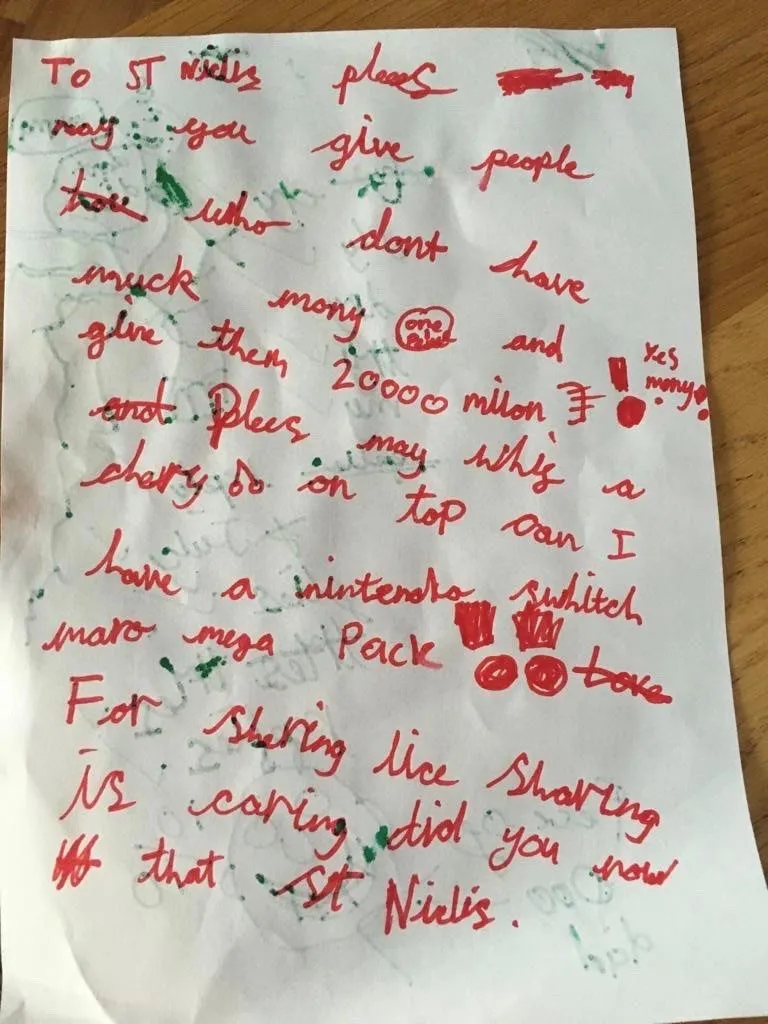 To ST Niclis plees
may you give people
who dont have
muck mony one and
give them 20000 milon ! Yes mony!
and Plees may whiş a
chery on top can I
have a nintendo swhitch
maro mega Pack !! love
For shering lice sharing
is caring did you now
that st Niclis.